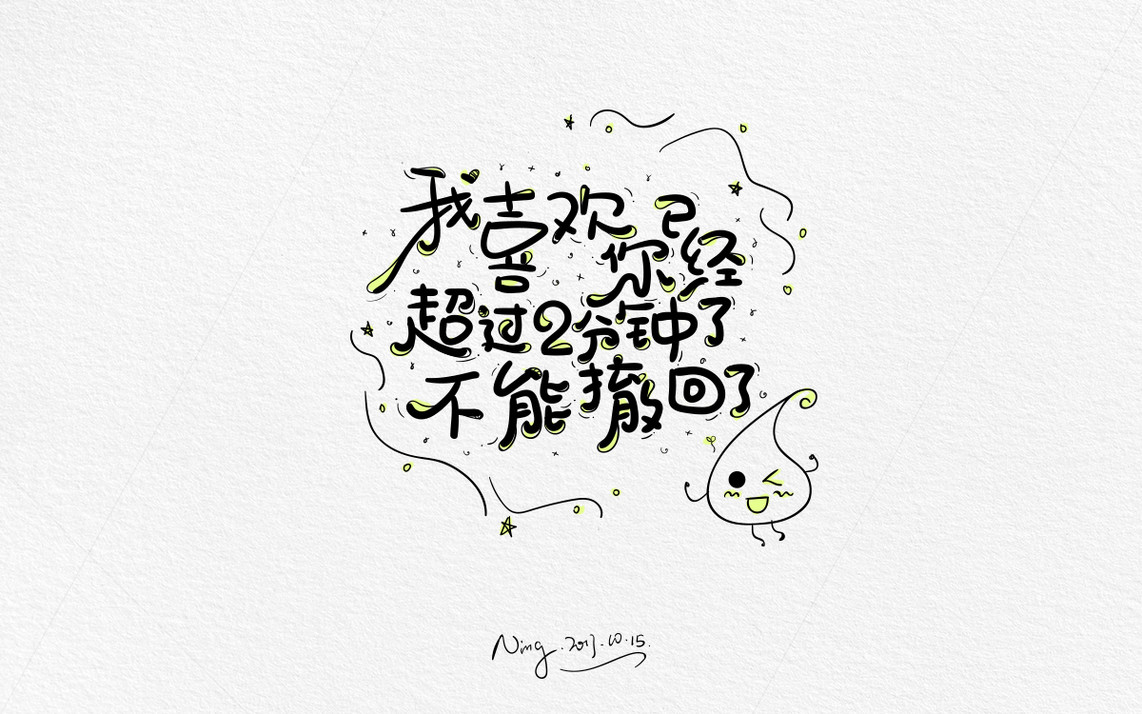 我喜欢你已经
超过2分钟了
不能撤回了
Ning.2017.10.15.